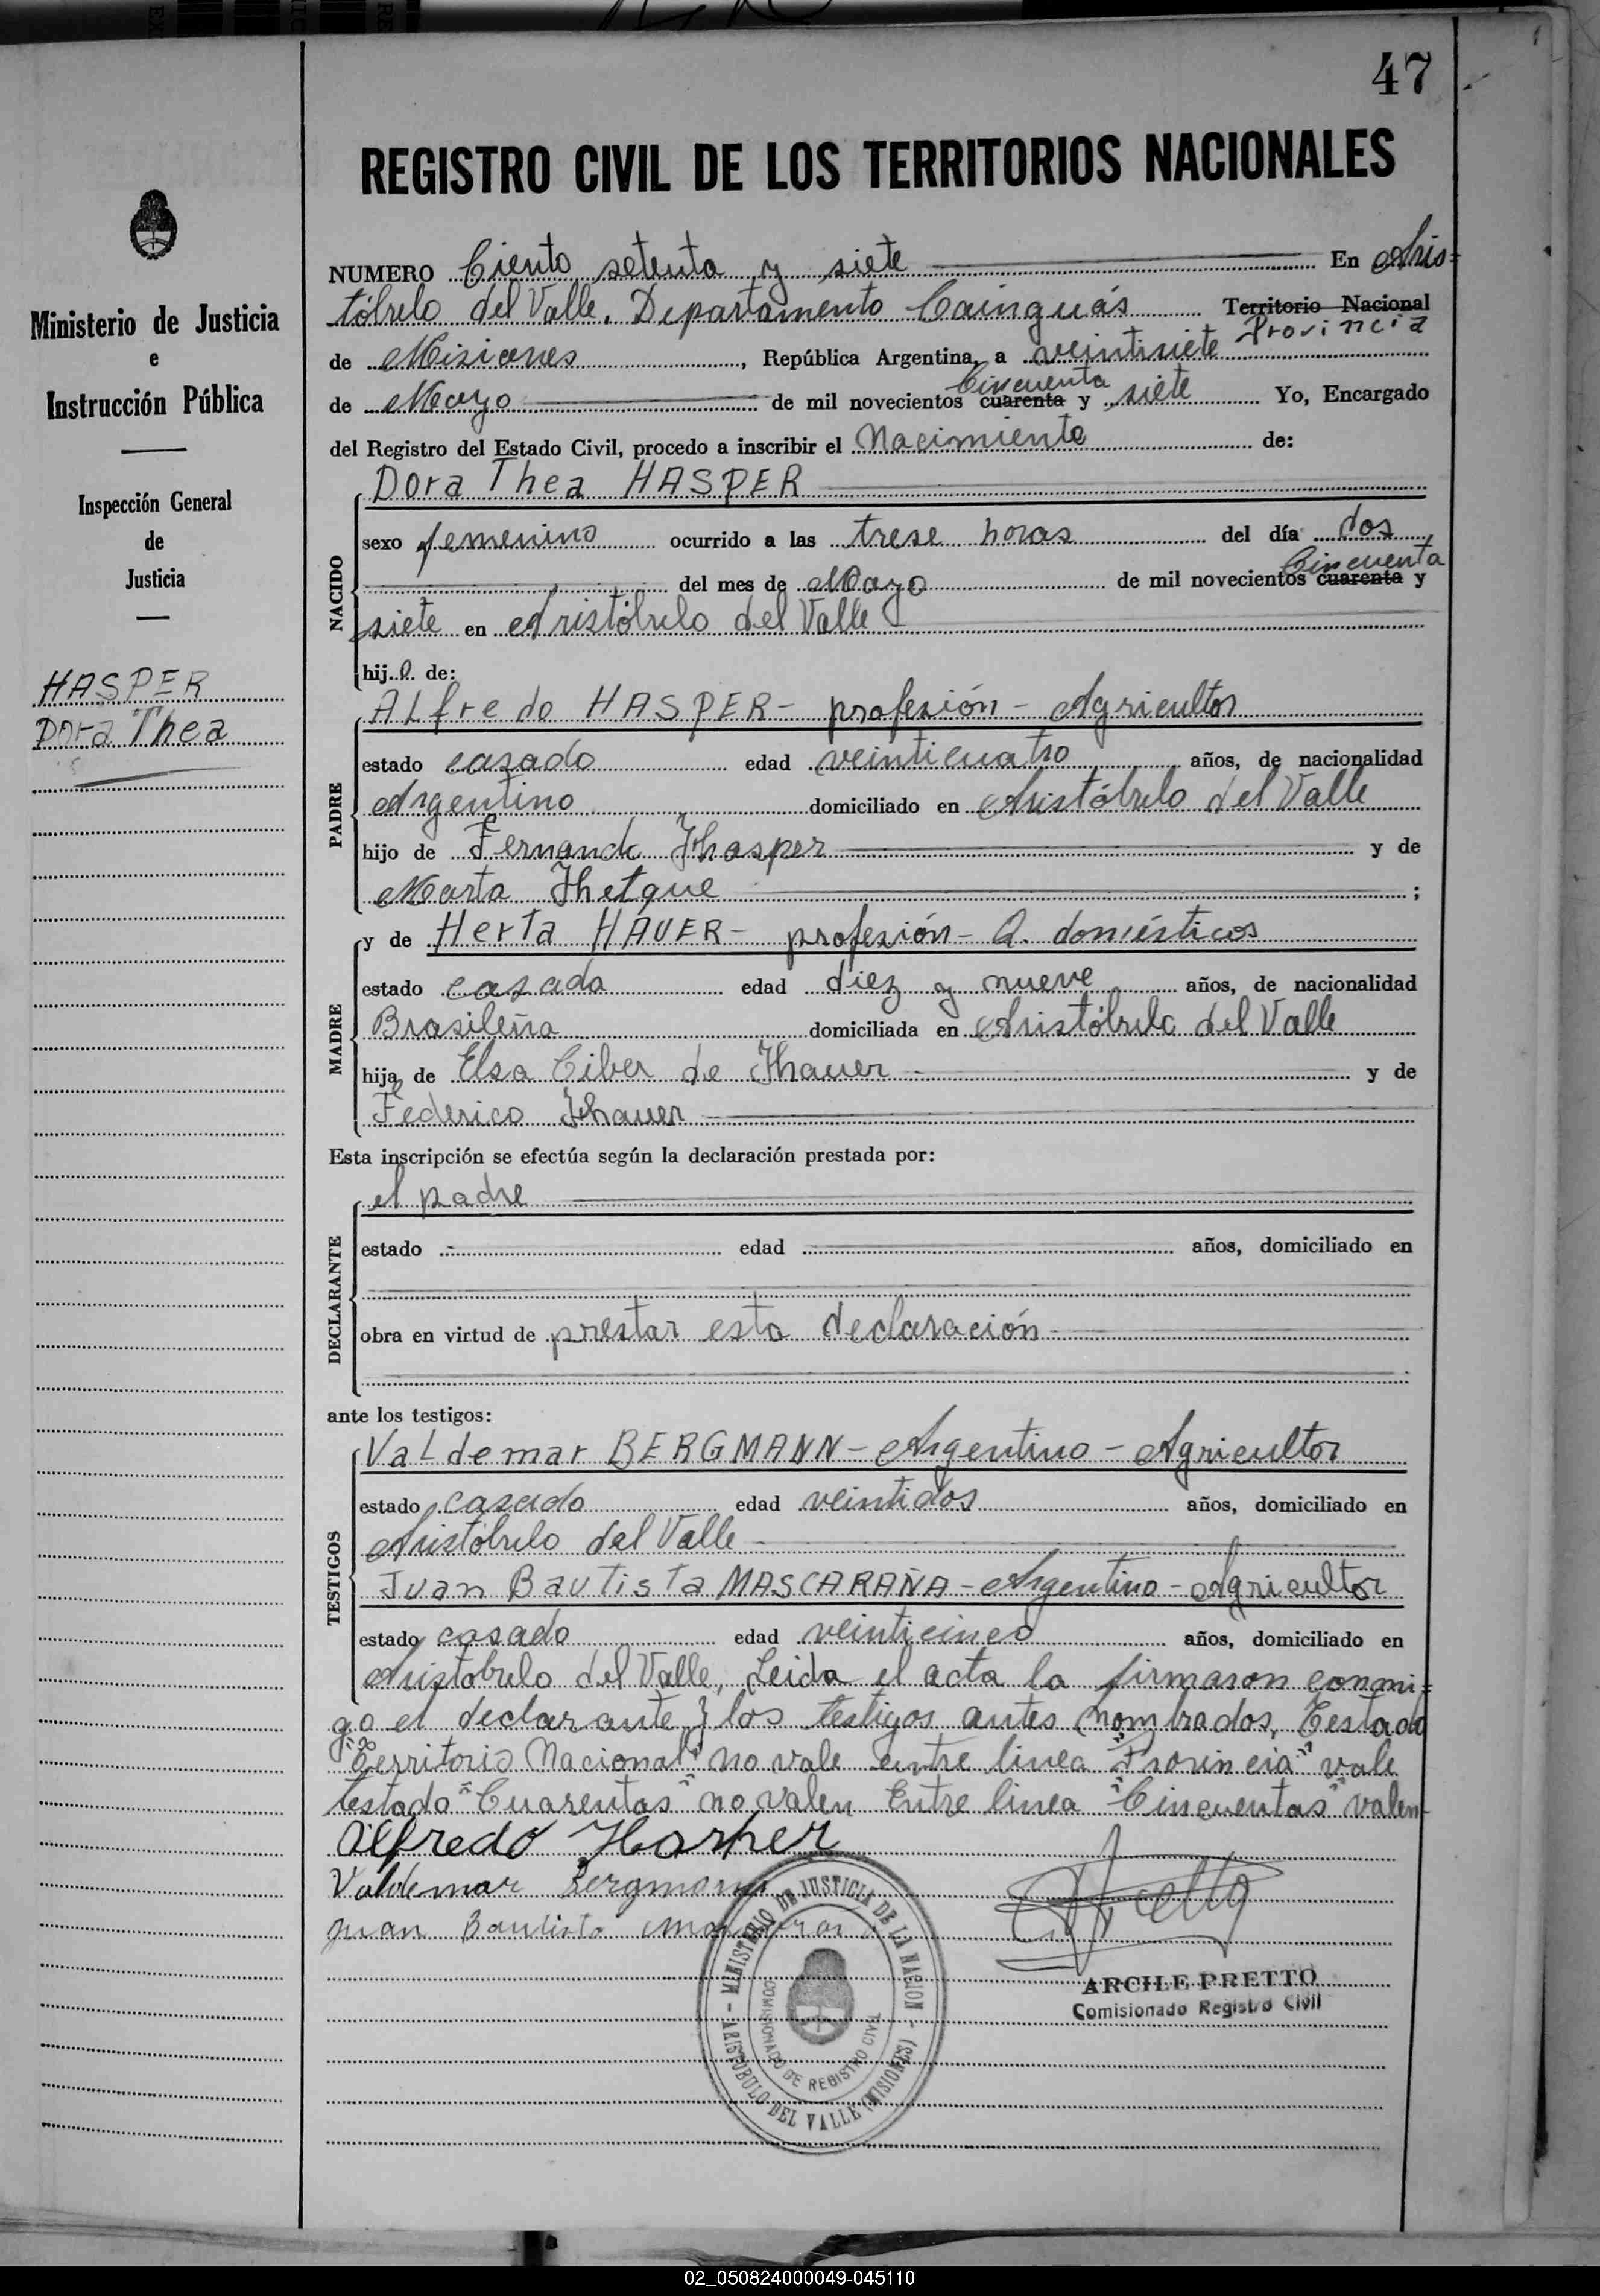 47
REGISTRO CIVIL DE LOS TERRITORIOS NACIONALES
Ministerio de Justicia
e
Instrucción Pública
Inspección General
de
Justicia
HASPER
Dora Thea
NUMERO Ciento setenta y siete En Aris=
tóbulo del Valle. Departamento Cainguás Territorio Nacional
Provincia
de Misiones, República Argentina, a veintisiete
Cincuenta
de Mayo de mil novecientos cuarenta y siete Yo, Encargado
del Registro del Estado Civil, procedo a inscribir el Nacimiento de:
NACIDO
Dora Thea HASPER
sexo femenino ocurrido a las trese horas del día dos
Cincuenta
del mes de Mayo de mil novecientos cuarenta y
siete en Aristóbulo del Valle
hij a de:
PADRE
ALfredo HASPER- profesión - Agricultor
estado casado edad veinticuatro años, de nacionalidad
Argentino domiciliado en Aristóbulo del Valle
hijo de Fernando Jhasper y de
Marta Jhetque ;
MADRE
y de Herta HAUER- profesión- Q. domésticos
estado casada edad diez y nueve años, de nacionalidad
Brasileña domiciliada en Aristóbulo del Valle
hija de Elsa Ciber de Jhauer y de
Federico Jhauer
Esta inscripción se efectúa según la declaración prestada por:
DECLARANTE
el padre
estado edad años, domiciliado en
obra en virtud de prestar esta declaración
ante los testigos:
TESTIGOS
VaLdemar BERGMANN- Argentino - Agricultor
estado casado edad veintidos años, domiciliado en
Aristóbulo del Valle
Juan Bautista MASCARAÑA- Argentino - Agricultor
estado casado edad veinticinco años, domiciliado en
Aristobulo del Valle, Leida el acta la firmaron conmi=
go el declarante y los testigos antes nombrados, Testado
"Territorio Nacional" no vale entre linea "Provincia" vale
testado "Cuarentas" no valen Entre linea "Cincuentas" valen-
Alfredo Hasper
Valdemar Bergmann
Juan Bautista
MINISTERIO DE JUSTICIA DE LA NACION - ARISTOBULO DEL VALLE (MISIONES) -
COMISIONADO DE REGISTRO CIVIL
ARCHILE PRETTO
Comisionado Registro Civil
02_050824000049-045110